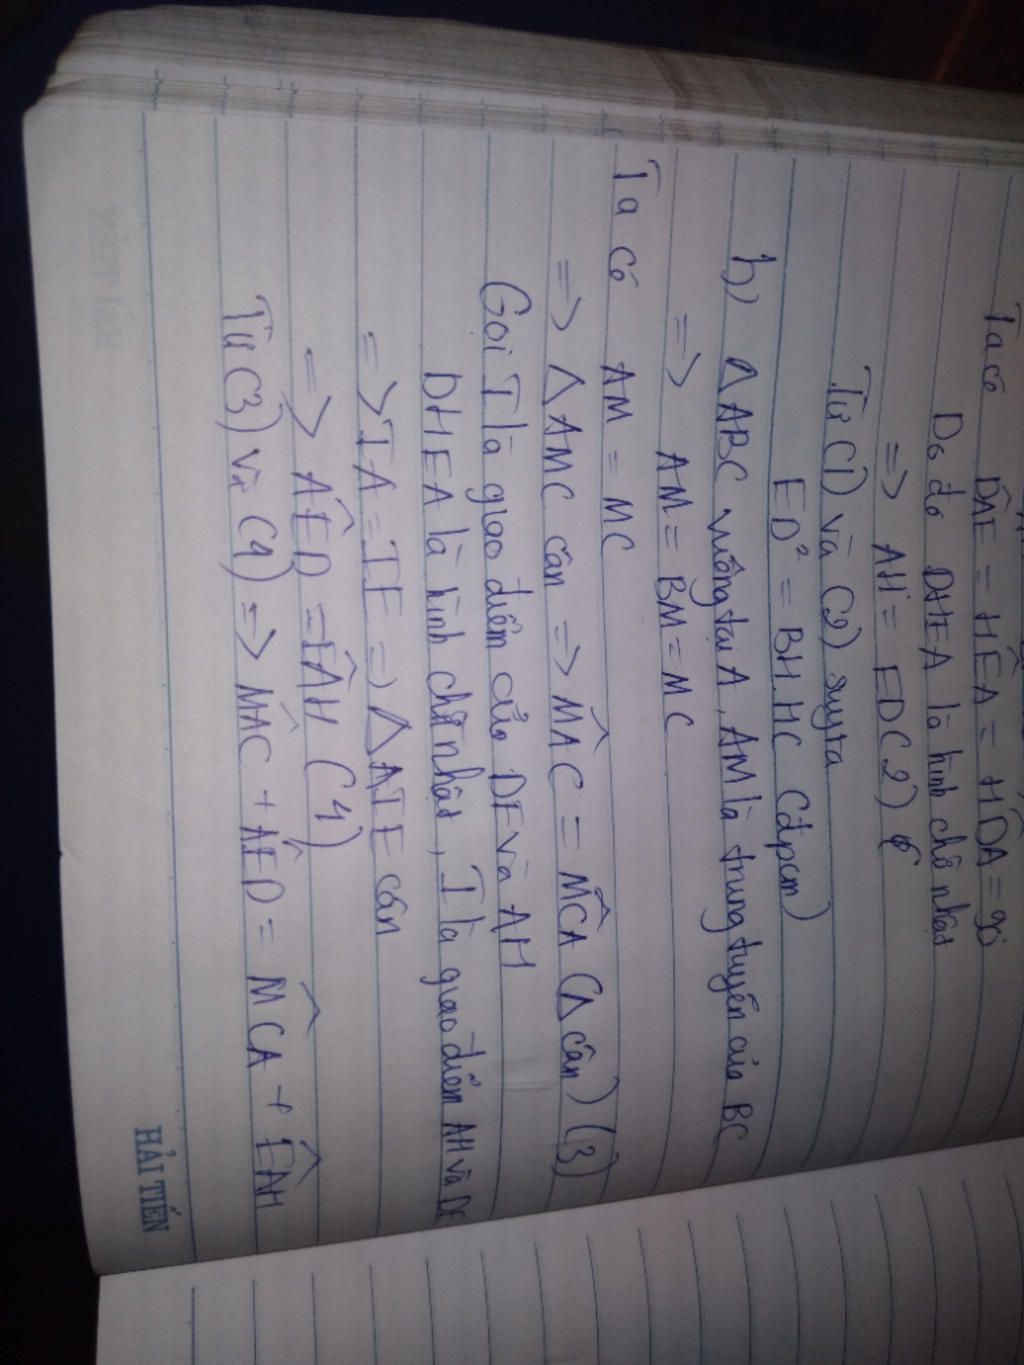 Ta có DÂE = HÊA = HD̂A = 90
Do đó DHEA là hình chữ nhật
=> AH = ED (2)
Từ (1) và (2) suy ta
ED² = BH.HC (đpcm)
b) △ABC vuông tại A, AM là trung tuyến của BC
=> AM = BM = MC
Ta có AM = MC
=> △AMC cân => MÂC = MĈA (△ cân) (3)
Gọi I là giao điểm của DE và AH
DHEA là hình chữ nhật, I là giao điểm AH và DE
=> IA = IE => △AIE cân
=> AÊD = EÂH (4)
Từ (3) và (4) => MÂC + AÊD = MĈA + EÂH
HẢI TIẾN